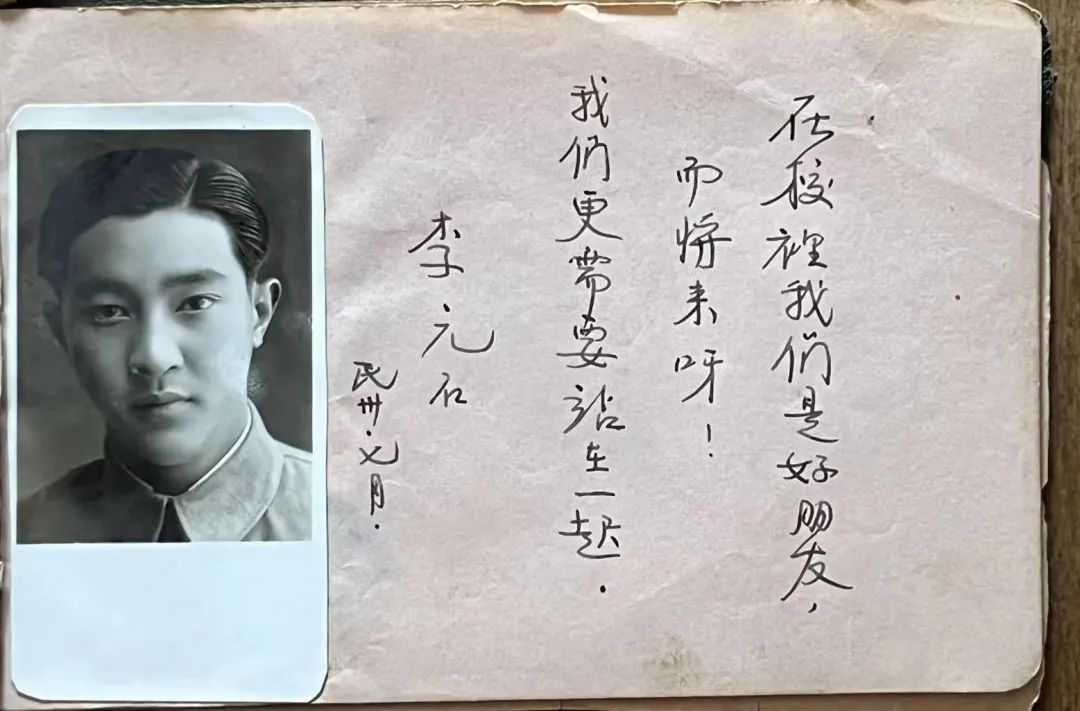 在校裡我們是好朋友，
而將来呀！
我們更需要站在一起．
李元石
民卅．七月．